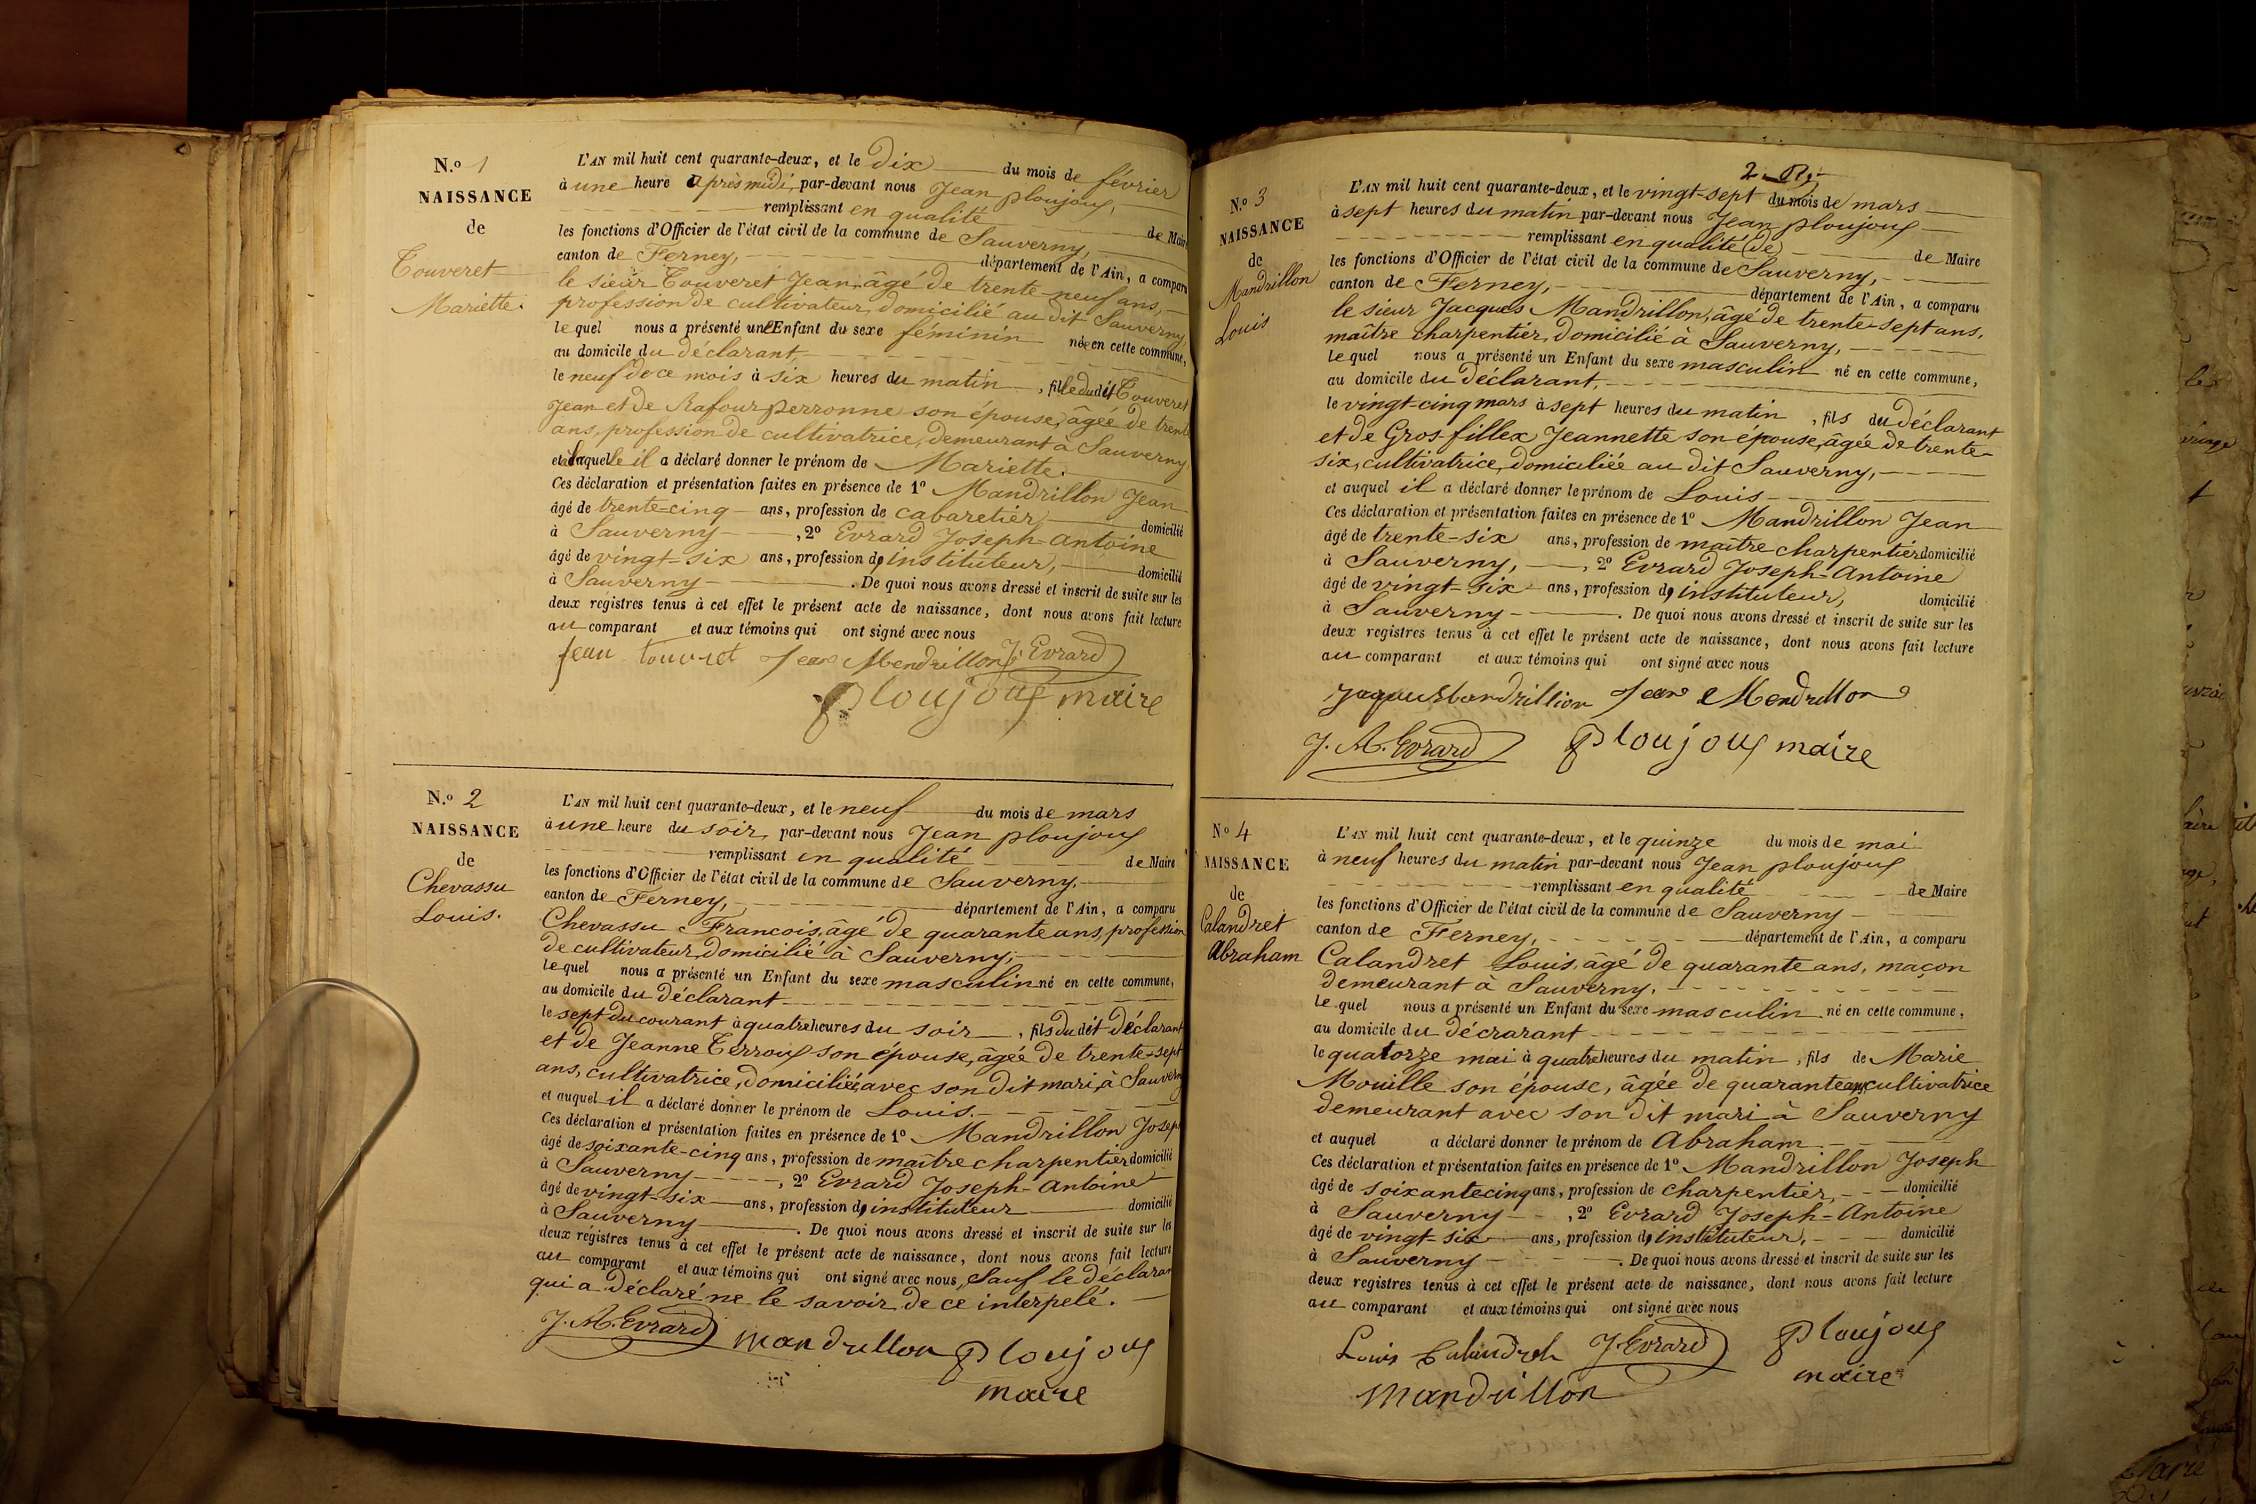 N.º 1
NAISSANCE
de
Touveret
Mariette.
L'AN mil huit cent quarante-deux, et le dix du mois de février
à une heure après midi, par-devant nous Jean Ploujoux,
remplissant en qualité de Maire
les fonctions d'Officier de l'état civil de la commune de Sauverny,
canton de Ferney, département de l'Ain, a comparu
le sieur Touveret Jean, âgé de trente neuf ans,
profession de cultivateur, domicilié au dit Sauverny,
lequel nous a présenté une Enfant du sexe féminin née en cette commune,
au domicile du déclarant,
le neuf de ce mois à six heures du matin, fille du dit Touveret
Jean et de Rafour perronne son épouse, âgée de trente
ans, profession de cultivatrice, demeurant à Sauverny
et à laquelle il a déclaré donner le prénom de Mariette.
Ces déclaration et présentation faites en présence de 1º Mandrillon Jean
âgé de trente-cinq ans, profession de cabaretier, domicilié
à Sauverny, 2º Evrard Joseph-Antoine
âgé de vingt-six ans, profession d'instituteur, domicilié
à Sauverny. De quoi nous avons dressé et inscrit de suite sur les
deux registres tenus à cet effet le présent acte de naissance, dont nous avons fait lecture
au comparant et aux témoins qui ont signé avec nous
Jean touvret Jean Mendrillon J. Evrard
Ploujoux maire
N.º 2
NAISSANCE
de
Chevassu
Louis.
L'AN mil huit cent quarante-deux, et le neuf du mois de mars
à une heure du soir, par-devant nous Jean Ploujoux
remplissant en qualité de Maire
les fonctions d'Officier de l'état civil de la commune de Sauverny,
canton de Ferney, département de l'Ain, a comparu
Chevassu Francois, âgé de quarante ans, profession
de cultivateur, domicilié à Sauverny,
lequel nous a présenté un Enfant du sexe masculin né en cette commune,
au domicile du déclarant
le sept du courant à quatre heures du soir, fils du dit déclarant
et de Jeanne Terroux son épouse, âgée de trente-sept
ans, cultivatrice, domiciliée avec son dit mari, à Sauverny
et auquel il a déclaré donner le prénom de Louis.
Ces déclaration et présentation faites en présence de 1º Mandrillon Joseph
âgé de soixante-cinq ans, profession de maître charpentier domicilié
à Sauverny, 2º Evrard Joseph-Antoine
âgé de vingt-six ans, profession d'instituteur domicilié
à Sauverny. De quoi nous avons dressé et inscrit de suite sur les
deux registres tenus à cet effet le présent acte de naissance, dont nous avons fait lecture
au comparant et aux témoins qui ont signé avec nous, Sauf le déclarant
qui a déclaré ne le savoir de ce interpelé.
J. A. Evrard mandrillon Ploujoux
maire
2
N.º 3
NAISSANCE
de
Mandrillon
Louis
L'AN mil huit cent quarante-deux, et le vingt-sept du mois de mars
à sept heures du matin par-devant nous Jean Ploujoux
remplissant en qualité (de) de Maire
les fonctions d'Officier de l'état civil de la commune de Sauverny,
canton de Ferney, département de l'Ain, a comparu
le sieur Jacques Mandrillon, âgé de trente-sept ans,
maître charpentier, domicilié à Sauverny,
lequel nous a présenté un Enfant du sexe masculin né en cette commune,
au domicile du déclarant,
le vingt-cinq mars à sept heures du matin, fils du déclarant
et de Gros-fillex Jeannette son épouse, âgée de trente-
six, cultivatrice, domiciliée au dit Sauverny,
et auquel il a déclaré donner le prénom de Louis
Ces déclaration et présentation faites en présence de 1º Mandrillon Jean
âgé de trente-six ans, profession de maître charpentier domicilié
à Sauverny, 2º Evrard Joseph-Antoine
âgé de vingt-six ans, profession d'instituteur, domicilié
à Sauverny. De quoi nous avons dressé et inscrit de suite sur les
deux registres tenus à cet effet le présent acte de naissance, dont nous avons fait lecture
au comparant et aux témoins qui ont signé avec nous
Jaques Mandrillion Jean Mendrillon
J. A. Evrard Ploujoux maire
Nº 4
NAISSANCE
de
Calandret
Abraham
L'AN mil huit cent quarante-deux, et le quinze du mois de mai
à neuf heures du matin par-devant nous Jean Ploujoux
remplissant en qualité de Maire
les fonctions d'Officier de l'état civil de la commune de Sauverny
canton de Ferney, département de l'Ain, a comparu
Calandret Louis, âgé de quarante ans, maçon
demeurant à Sauverny.
lequel nous a présenté un Enfant du sexe masculin né en cette commune,
au domicile du décrarant
le quatorze mai à quatre heures du matin, fils de Marie
Mouille son épouse, âgée de quarante ans, cultivatrice
demeurant avec son dit mari à Sauverny
et auquel a déclaré donner le prénom de Abraham
Ces déclaration et présentation faites en présence de 1º Mandrillon Joseph
âgé de soixante cinq ans, profession de charpentier, domicilié
à Sauverny, 2º Evrard Joseph-Antoine
âgé de vingt-six ans, profession d'instituteur, domicilié
à Sauverny. De quoi nous avons dressé et inscrit de suite sur les
deux registres tenus à cet effet le présent acte de naissance, dont nous avons fait lecture
au comparant et aux témoins qui ont signé avec nous
Louis Calandret J. Evrard Ploujoux
maire
Mandrillon